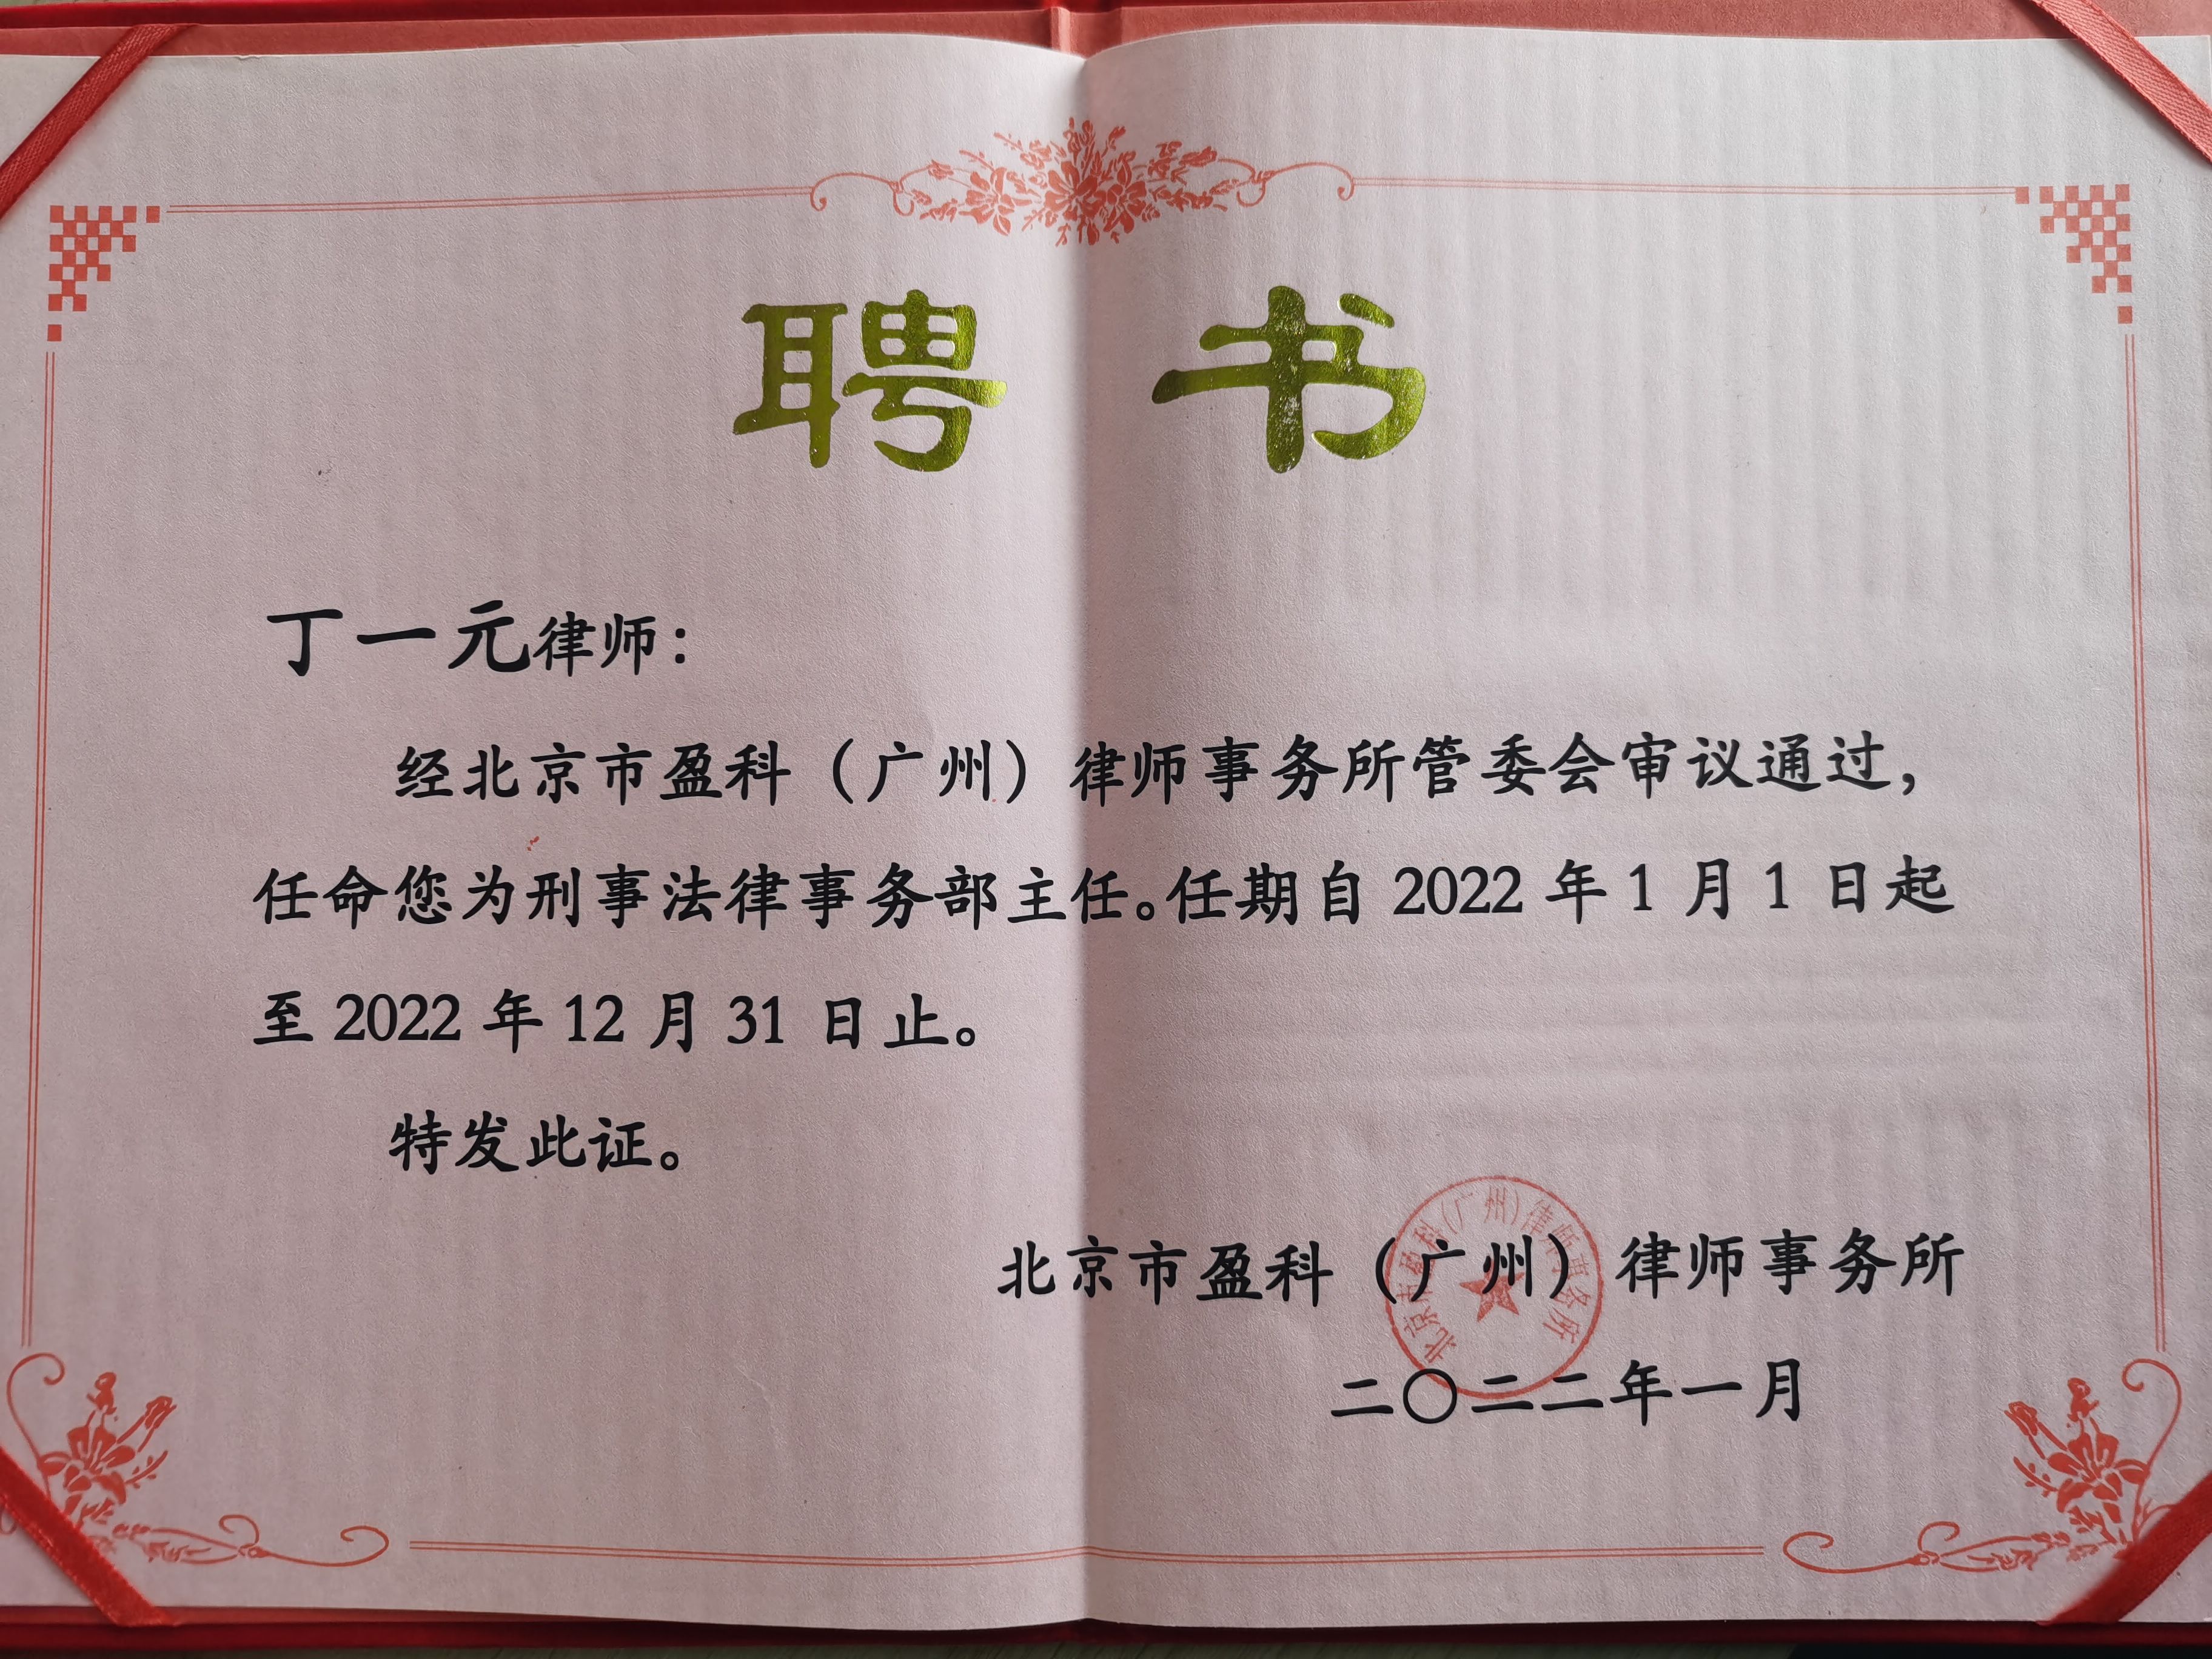 聘书
丁一元律师：
经北京市盈科（广州）律师事务所管委会审议通过，
任命您为刑事法律事务部主任。任期自 2022 年 1 月 1 日起
至 2022 年 12 月 31 日止。
特发此证。
北京市盈科（广州）律师事务所
北京市盈科(广州)律师事务所
二〇二二年一月